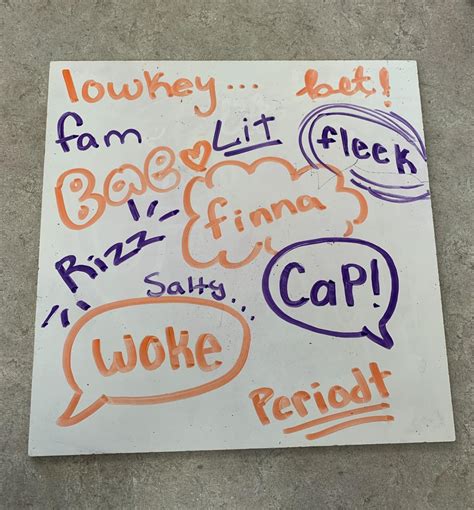 lowkey... bet!
fam Lit fleek
Bae finna
Rizz
Salty... CaP!
Woke
Periodt